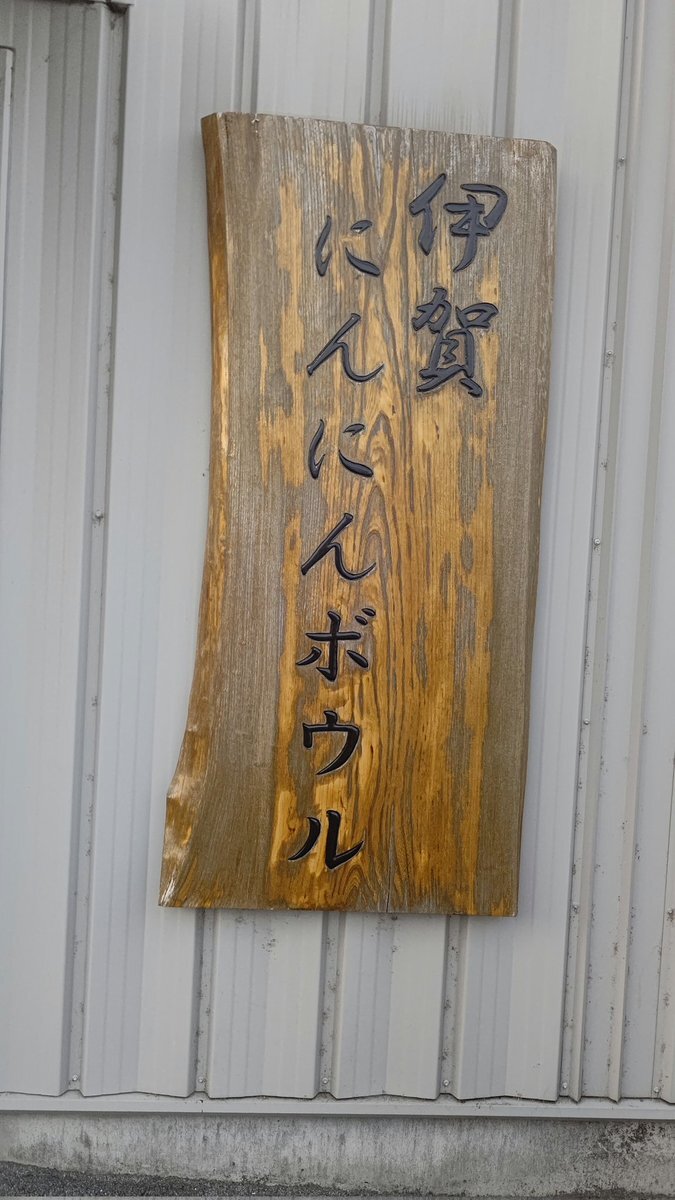 伊賀
にんにんボウル